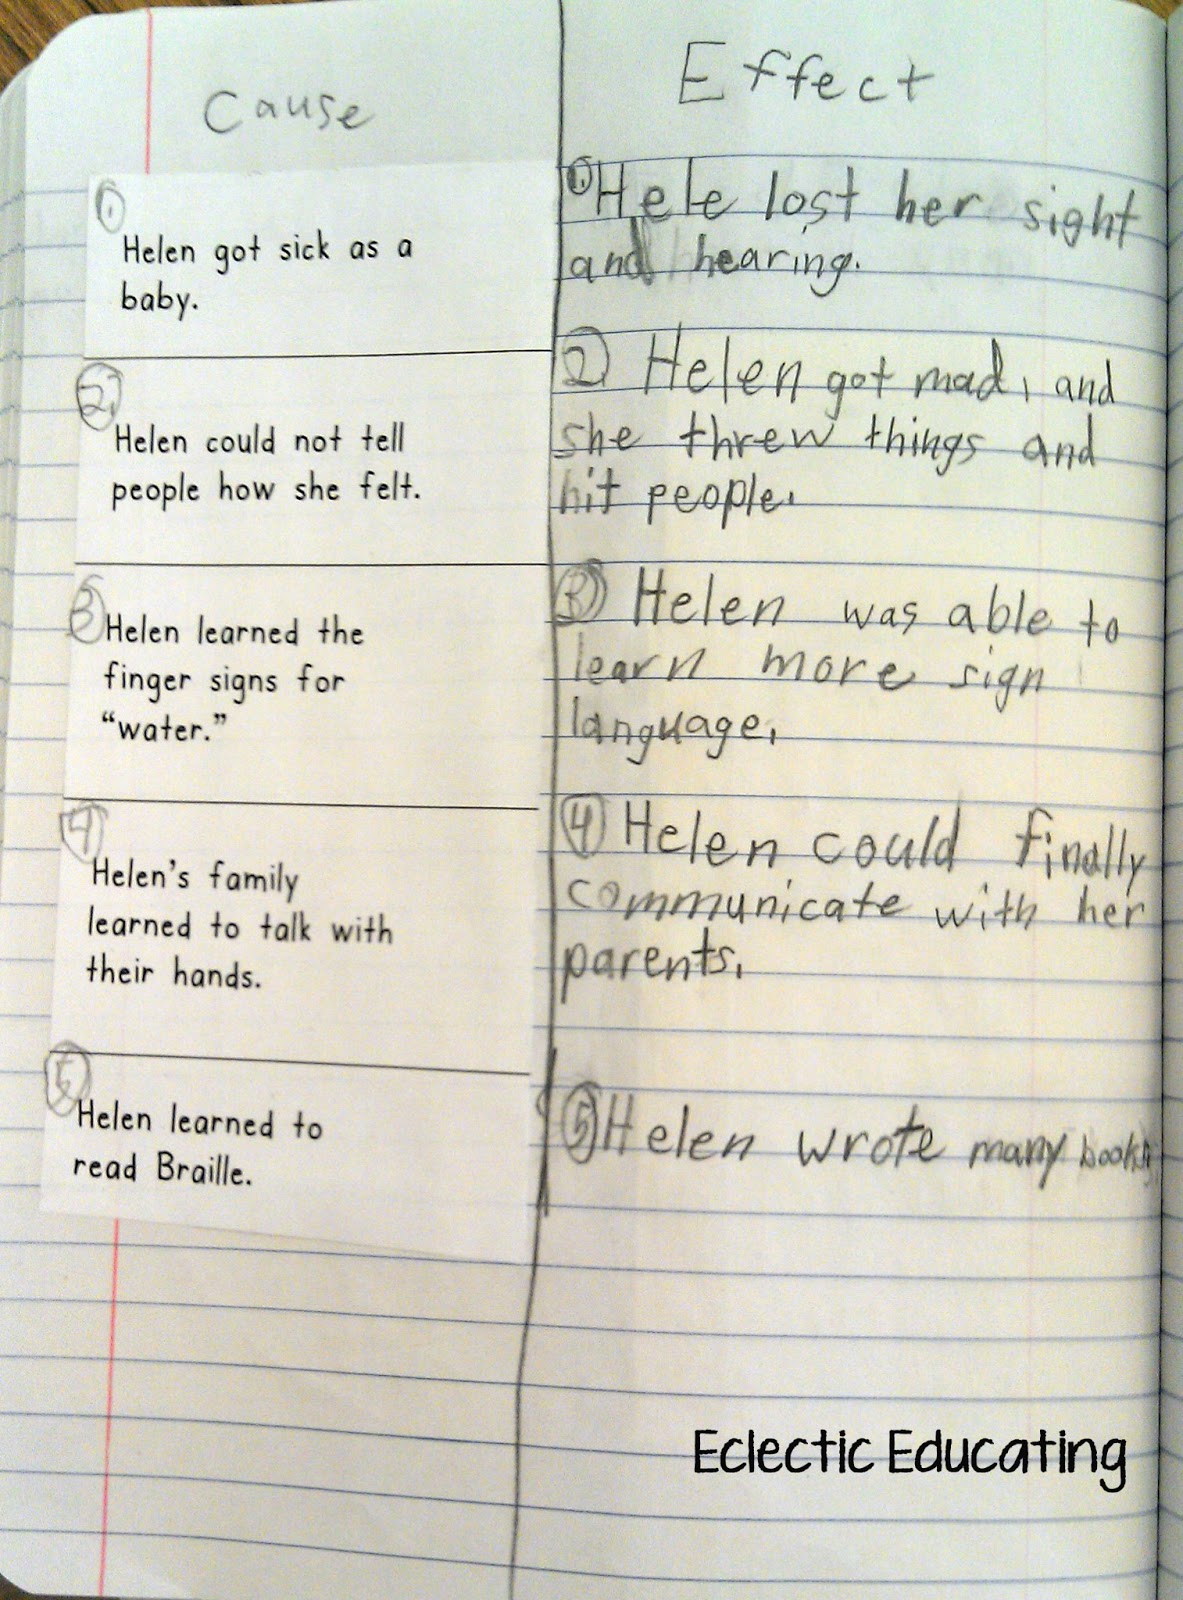 Cause
Effect
1.
Helen got sick as a
baby.
1. Hele lost her sight
and hearing.
2.
Helen could not tell
people how she felt.
2. Helen got mad, and
she threw things and
hit people.
3
Helen learned the
finger signs for
“water.”
3) Helen was able to
learn more sign
language.
4
Helen's family
learned to talk with
their hands.
4 Helen could finally
communicate with her
parents.
5
Helen learned to
read Braille.
5 Helen wrote many books.
Eclectic Educating